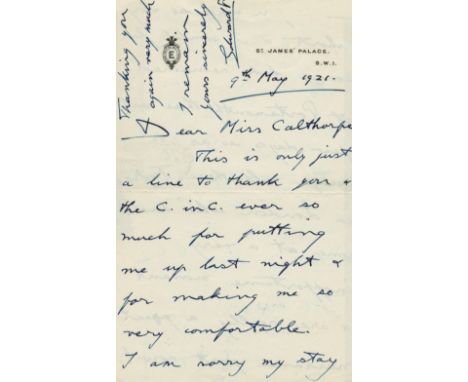 E
ST JAMES' PALACE,
S.W.1.
9th May 1921.
Dear Miss Calthorpe
This is only just
a line to thank you &
the C. in C. ever so
much for putting
me up last night &
for making me so
very comfortable.
I am sorry my stay
Thanking you
again very much
I remain
Yours sincerely
Edward P